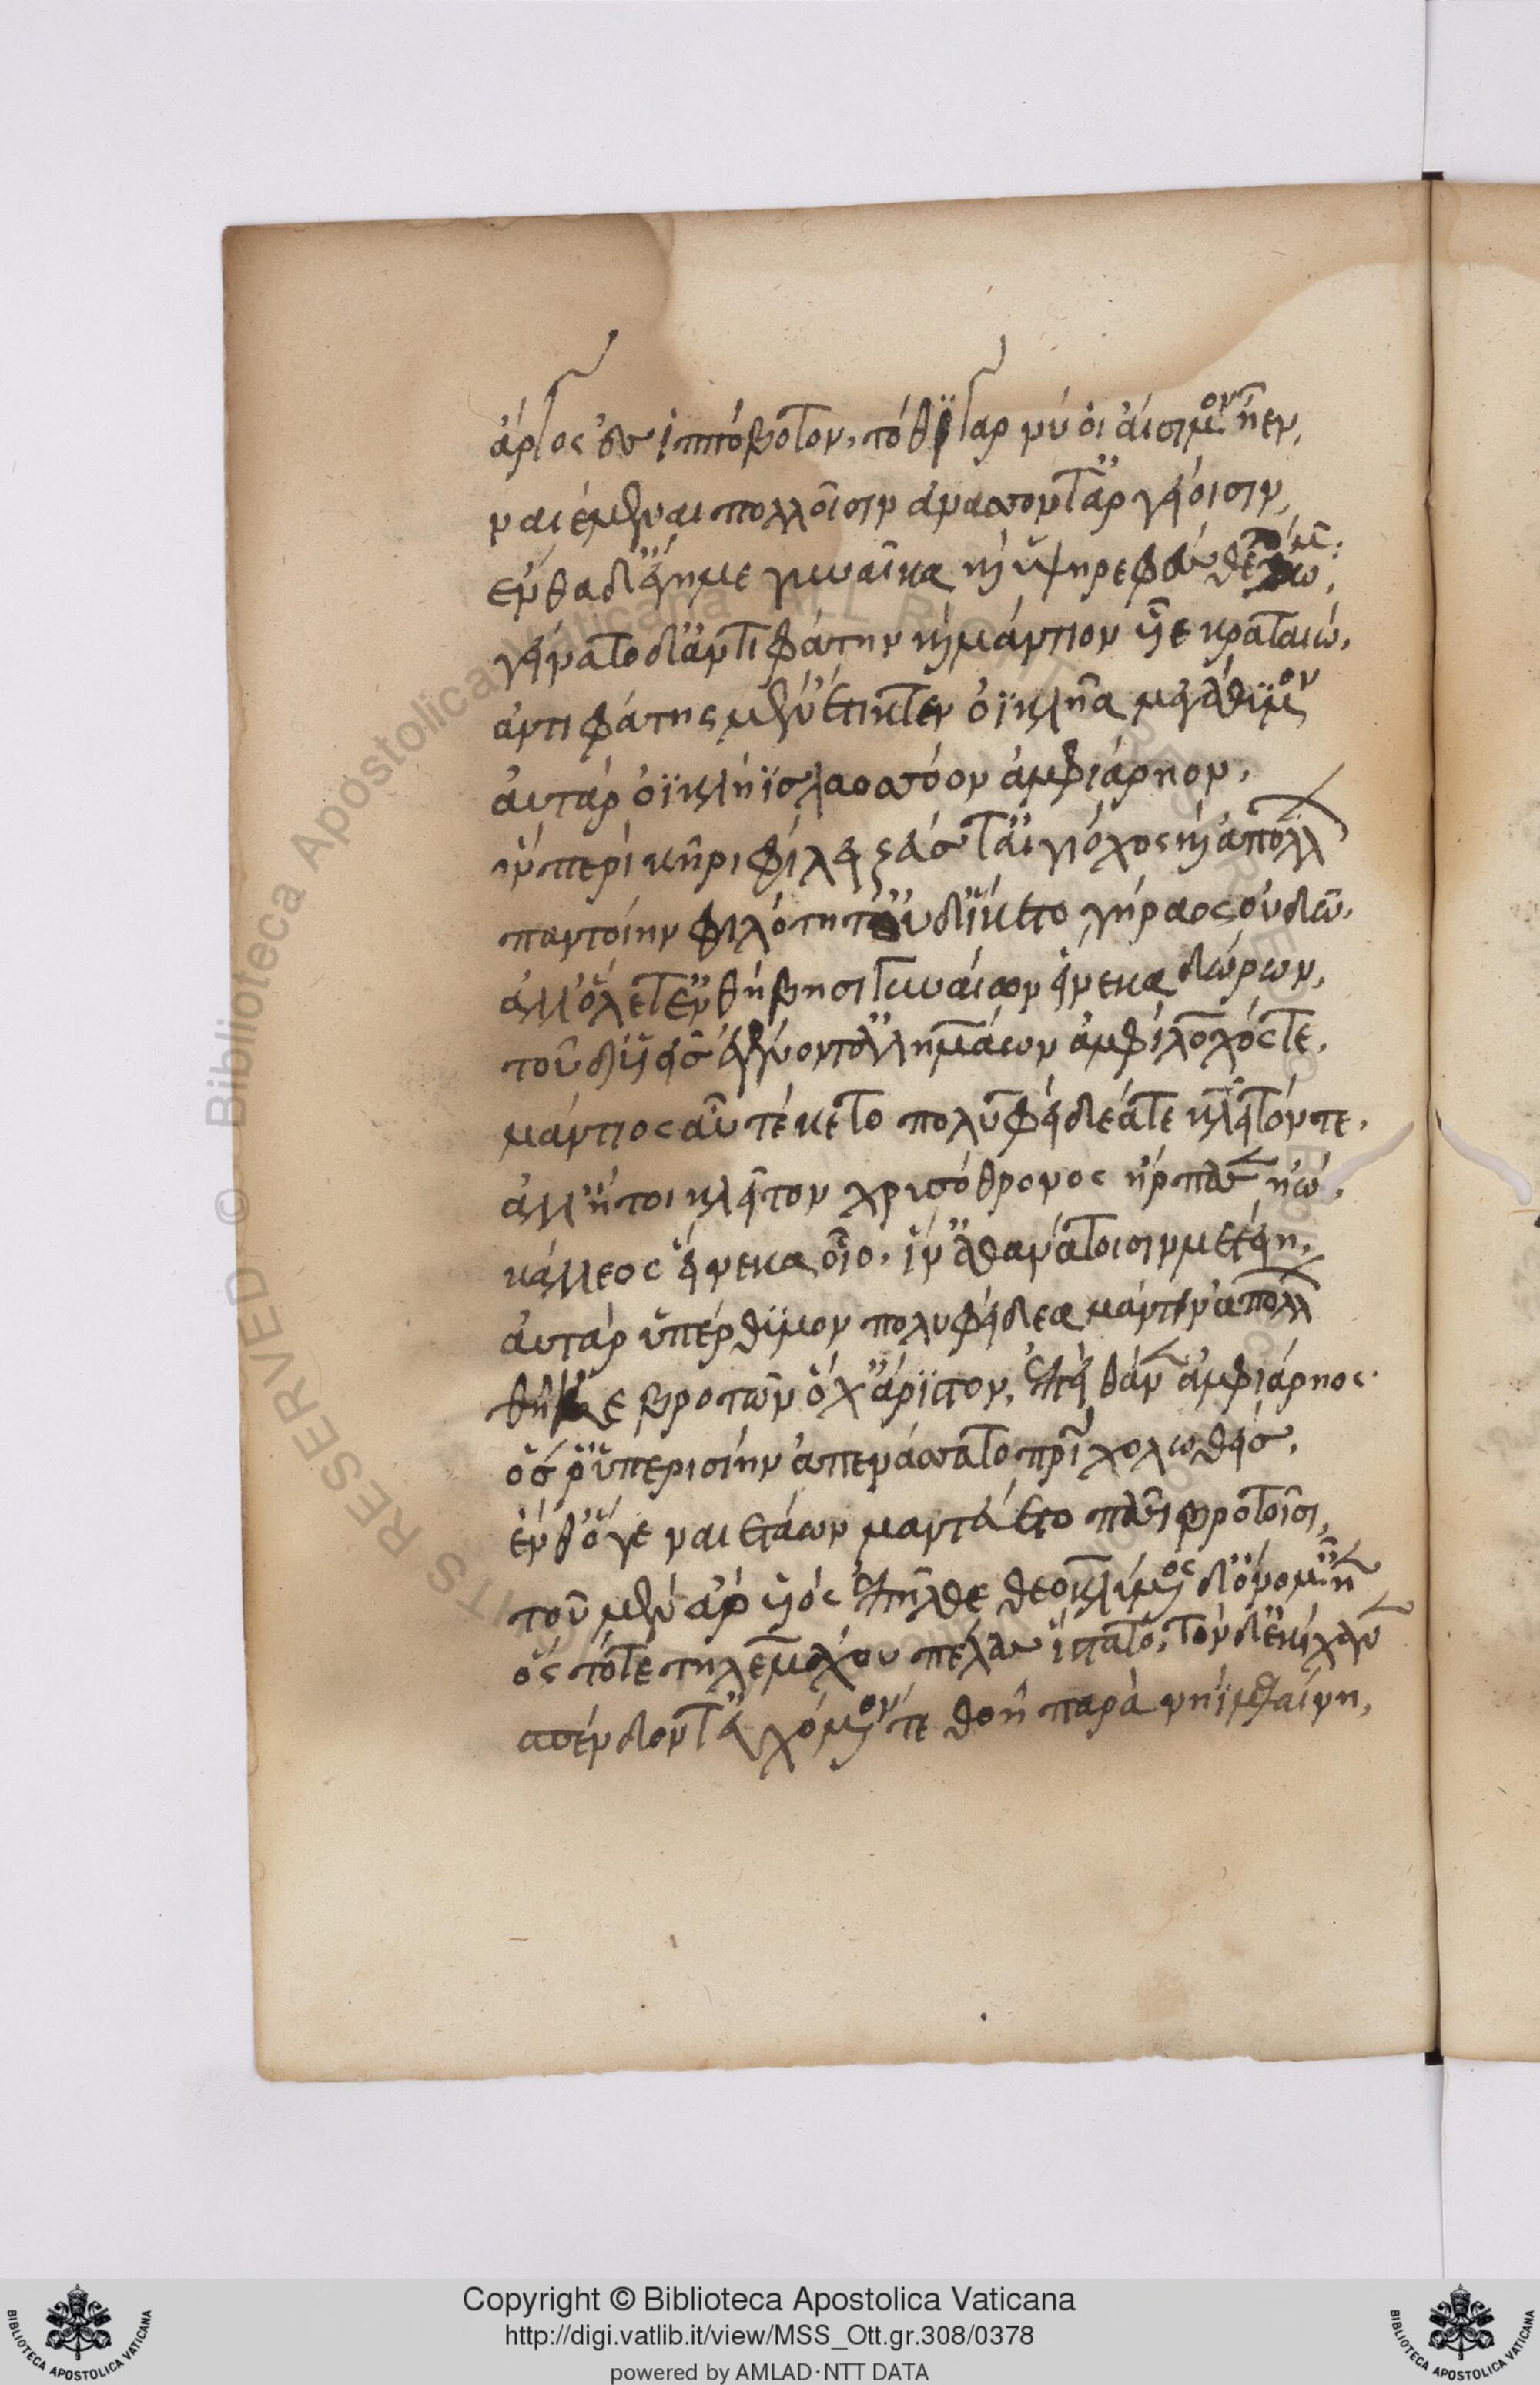 ἄργος ἐς ἱππόβοτον, τόθι γάρ νύ οἱ αἴσιμον ἦεν,
ναιέμεναι πολλοῖσιν ἀνάσσοντ' ἀργείοισιν,
ἔνθα δ' ἔγημε γυναῖκα καὶ ὑψηρεφὲς θέτο δῶμα
γείνατο δ' ἀντιφάτην καὶ μάντιον υἷε κραταιώ,
ἀντιφάτης μὲν ἔτικτεν ὀϊκλῆα μεγάθυμον
αὐτὰρ ὀϊκλήϊς λαοσσόον ἀμφιάρηον,
ὃν περὶ κῆρι φίλει ζεύς τ' αἰγίοχος καὶ ἀπόλλων
παντοίην φιλότητ' οὐδ' ἵκετο γήραος οὐδὸν,
ἀλλ' ὄλετ' ἐν θήβῃσι γυναίων εἵνεκα δώρων,
τοῦ δ' υἱεῖς ἐγένοντ' ἀλκμαίων ἀμφίλοχός τε,
μάντιος αὖ τέκετο πολυφείδεά τε κλεῖτόν τε,
ἀλλ' ἤτοι κλεῖτον χρυσόθρονος ἥρπασεν ἠώς,
κάλλεος εἵνεκα οἷο, ἵν' ἀθανάτοισι μετείη,
αὐτὰρ ὑπέρθυμον πολυφείδεα μάντιν ἀπόλλων
θῆκε βροτῶν ὄχ' ἄριστον, ἐπεὶ θάνεν ἀμφιάρηος.
ὅς ῥ' ὑπερισίην ἀπενάσσατο πατρὶ χολωθείς,
ἔνθ' ὅγε ναιετάων μαντεύετο πᾶσι βροτοῖσι,
τοῦ μὲν ἄρ' υἱὸς ἐπῆλθε θεοκλύμενος δ' ὄνομ' ἦεν
ὃς τότε τηλεμάχου πέλας ἵστατο, τὸν δ' ἐκίχανεν
σπένδοντ' εὐχόμενόν τε θοῇ παρὰ νηῒ μελαίνῃ,
Copyright © Biblioteca Apostolica Vaticana
http://digi.vatlib.it/view/MSS_Ott.gr.308/0378
powered by AMLAD·NTT DATA